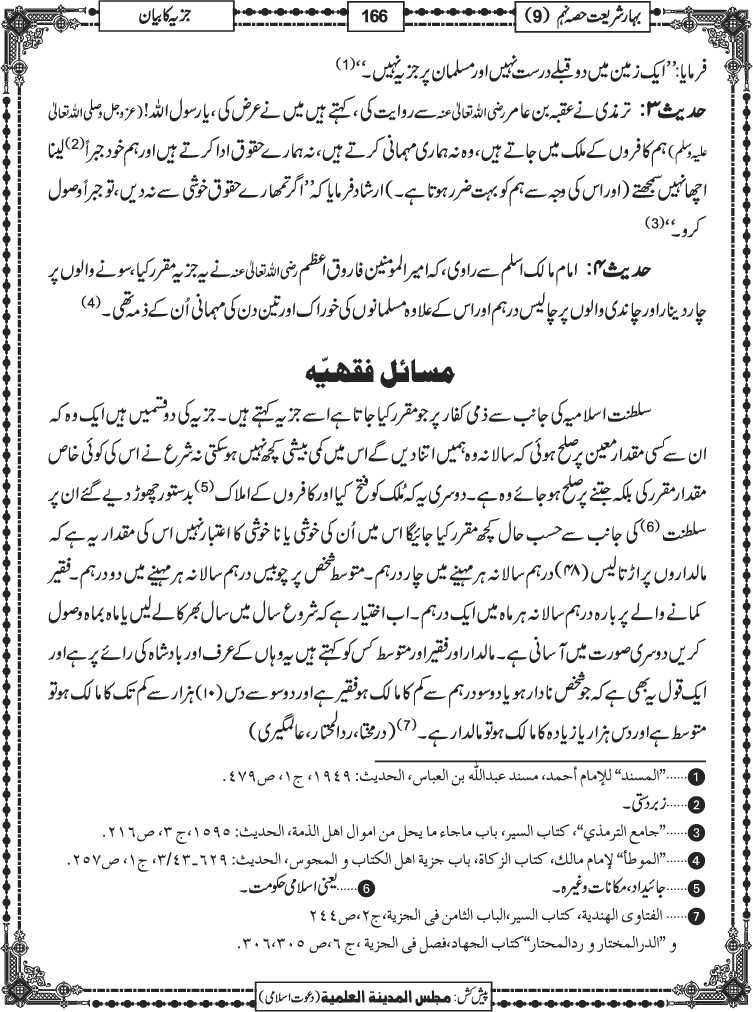 بہار شریعت حصہ نہم (9)
166
جزیہ کا بیان
فرمایا: ’’ایک زمین میں دو قبلے درست نہیں اور مسلمان پر جزیہ نہیں۔‘‘(1)
حدیث ۳: ترمذی نے عقبہ بن عامر رضی اللہ تعالیٰ عنہ سے روایت کی، کہتے ہیں میں نے عرض کی، یا رسول اللہ! (عزوجل وصلی اللہ تعالیٰ
علیہ وسلم) ہم کافروں کے ملک میں جاتے ہیں، وہ نہ ہماری مہمانی کرتے ہیں، نہ ہمارے حقوق ادا کرتے ہیں اور ہم خود جبراً(2) لینا
اچھا نہیں سمجھتے (اور اس کی وجہ سے ہم کو بہت ضرر ہوتا ہے۔) ارشاد فرمایا کہ ’’اگر تمھارے حقوق خوشی سے نہ دیں، تو جبراً وصول
کرو۔‘‘(3)
حدیث ۴: امام مالک اسلم سے راوی، کہ امیر المومنین فاروق اعظم رضی اللہ تعالیٰ عنہ نے یہ جزیہ مقرر کیا، سونے والوں پر
چار دینار اور چاندی والوں پر چالیس درہم اور اس کے علاوہ مسلمانوں کی خوراک اور تین دن کی مہمانی اُن کے ذمہ تھی۔(4)
مسائل فقهیّه
سلطنت اسلامیہ کی جانب سے ذمی کفار پر جو مقرر کیا جاتا ہے اسے جزیہ کہتے ہیں۔ جزیہ کی دو قسمیں ہیں ایک وہ کہ
ان سے کسی مقدار معین پر صلح ہوئی کہ سالانہ وہ ہمیں اتنا دیں گے اس میں کمی بیشی کچھ نہیں ہوسکتی نہ شرع نے اس کی کوئی خاص
مقدار مقرر کی بلکہ جتنے پر صلح ہو جائے وہ ہے۔ دوسری یہ کہ مُلک کو فتح کیا اور کافروں کے املاک(5) بدستور چھوڑ دیے گئے ان پر
سلطنت(6) کی جانب سے حسب حال کچھ مقرر کیا جائیگا اس میں اُن کی خوشی یا نا خوشی کا اعتبار نہیں اس کی مقدار یہ ہے کہ
مالداروں پر اڑتالیس (۴۸) درہم سالانہ ہر مہینے میں چار درہم۔ متوسط شخص پر چوبیس درہم سالانہ ہر مہینے میں دو درہم۔ فقیر
کمانے والے پر بارہ درہم سالانہ ہر ماہ میں ایک درہم۔ اب اختیار ہے کہ شروع سال میں سال بھر کا لے لیں یا ماہ بماہ وصول
کریں دوسری صورت میں آسانی ہے۔ مالدار اور فقیر اور متوسط کس کو کہتے ہیں یہ وہاں کے عرف اور بادشاہ کی رائے پر ہے اور
ایک قول یہ بھی ہے کہ جو شخص نادار ہو یا دو سو درہم سے کم کا مالک ہو فقیر ہے اور دو سو سے دس (۱۰) ہزار سے کم تک کا مالک ہو تو
متوسط ہے اور دس ہزار یا زیادہ کا مالک ہو تو مالدار ہے۔(7) (درمختار، ردالمحتار، عالمگیری)
1......”المسند“ للإمام أحمد، مسند عبدالله بن العباس، الحديث: ١٩٤٩، ج١، ص٤٧٩.
2......زبردستی۔
3......”جامع الترمذي“، كتاب السير، باب ماجاء ما يحل من اموال اهل الذمة، الحديث: ١٥٩٥، ج٣، ص٢١٦.
4......”الموطأ“ لإمام مالك، كتاب الزكاة، باب جزية اهل الكتاب و المجوس، الحديث: ٦٢٩-٣/٤٣، ج١، ص٢٥٧.
5......جائیداد، مکانات وغیرہ۔ 6......یعنی اسلامی حکومت۔
7...... الفتاوى الهندية، كتاب السير، الباب الثامن فى الجزية، ج٢، ص٢٤٤
و ”الدرالمختار و ردالمحتار“ كتاب الجهاد، فصل فى الجزية، ج٦، ص٣٠٥، ٣٠٦.
پیش کش: مجلس المدينة العلمية (دعوت اسلامی)